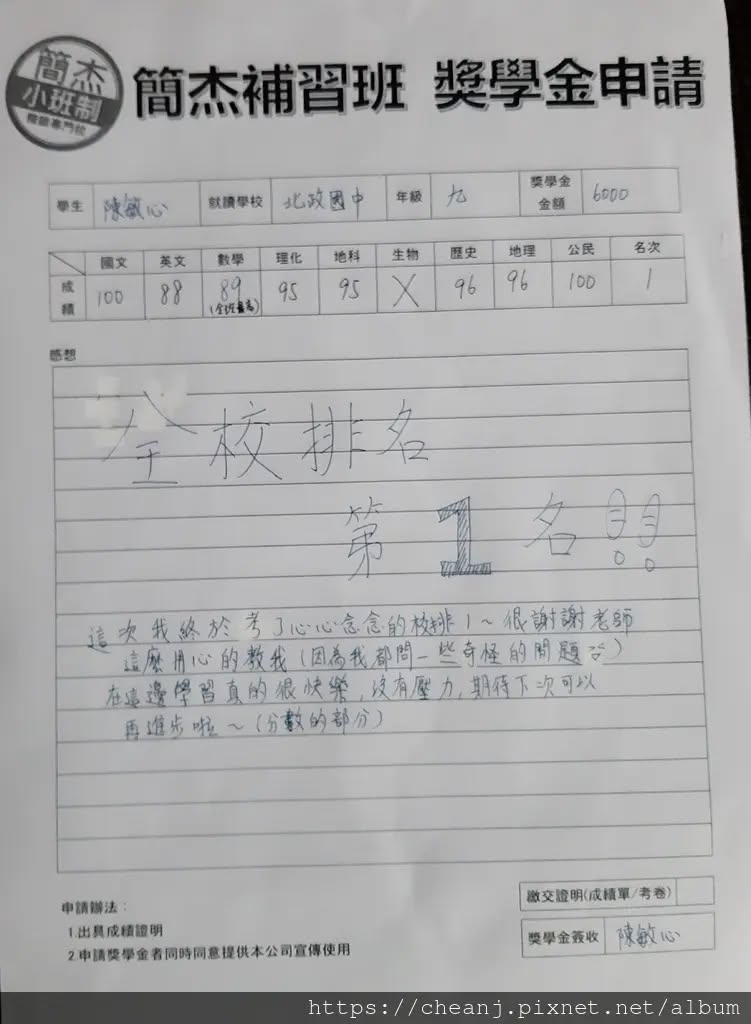 簡杰
小班制
簡杰補習班 獎學金申請
學生 陳敏心 就讀學校 北政國中 年級 九 獎學金金額 6000
國文 英文 數學 理化 地科 生物 歷史 地理 公民 名次
成績 100 88 89 95 95 X 96 96 100 1
(全班最高)
感想
全校排名
第1名!!
這次我終於考了心心念念的校排1~很謝謝老師
這麼用心的教我(因為我都問一些奇怪的問題)
在這邊學習真的很快樂,沒有壓力,期待下次可以
再進步啦~(分數的部分)
申請辦法:
1.出具成績證明
2.申請獎學金者同時同意提供本公司宣傳使用
繳交證明(成績單/考卷)
獎學金簽收 陳敏心
https://cheanj.pixnet.net/album